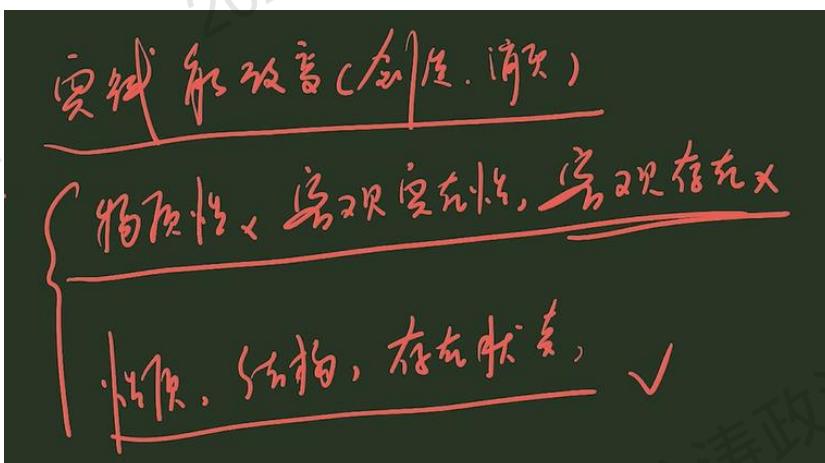 实践能改变(创造.消灭)
物质性x 客观实在性,客观存在x
性质,结构,存在状态, ✓